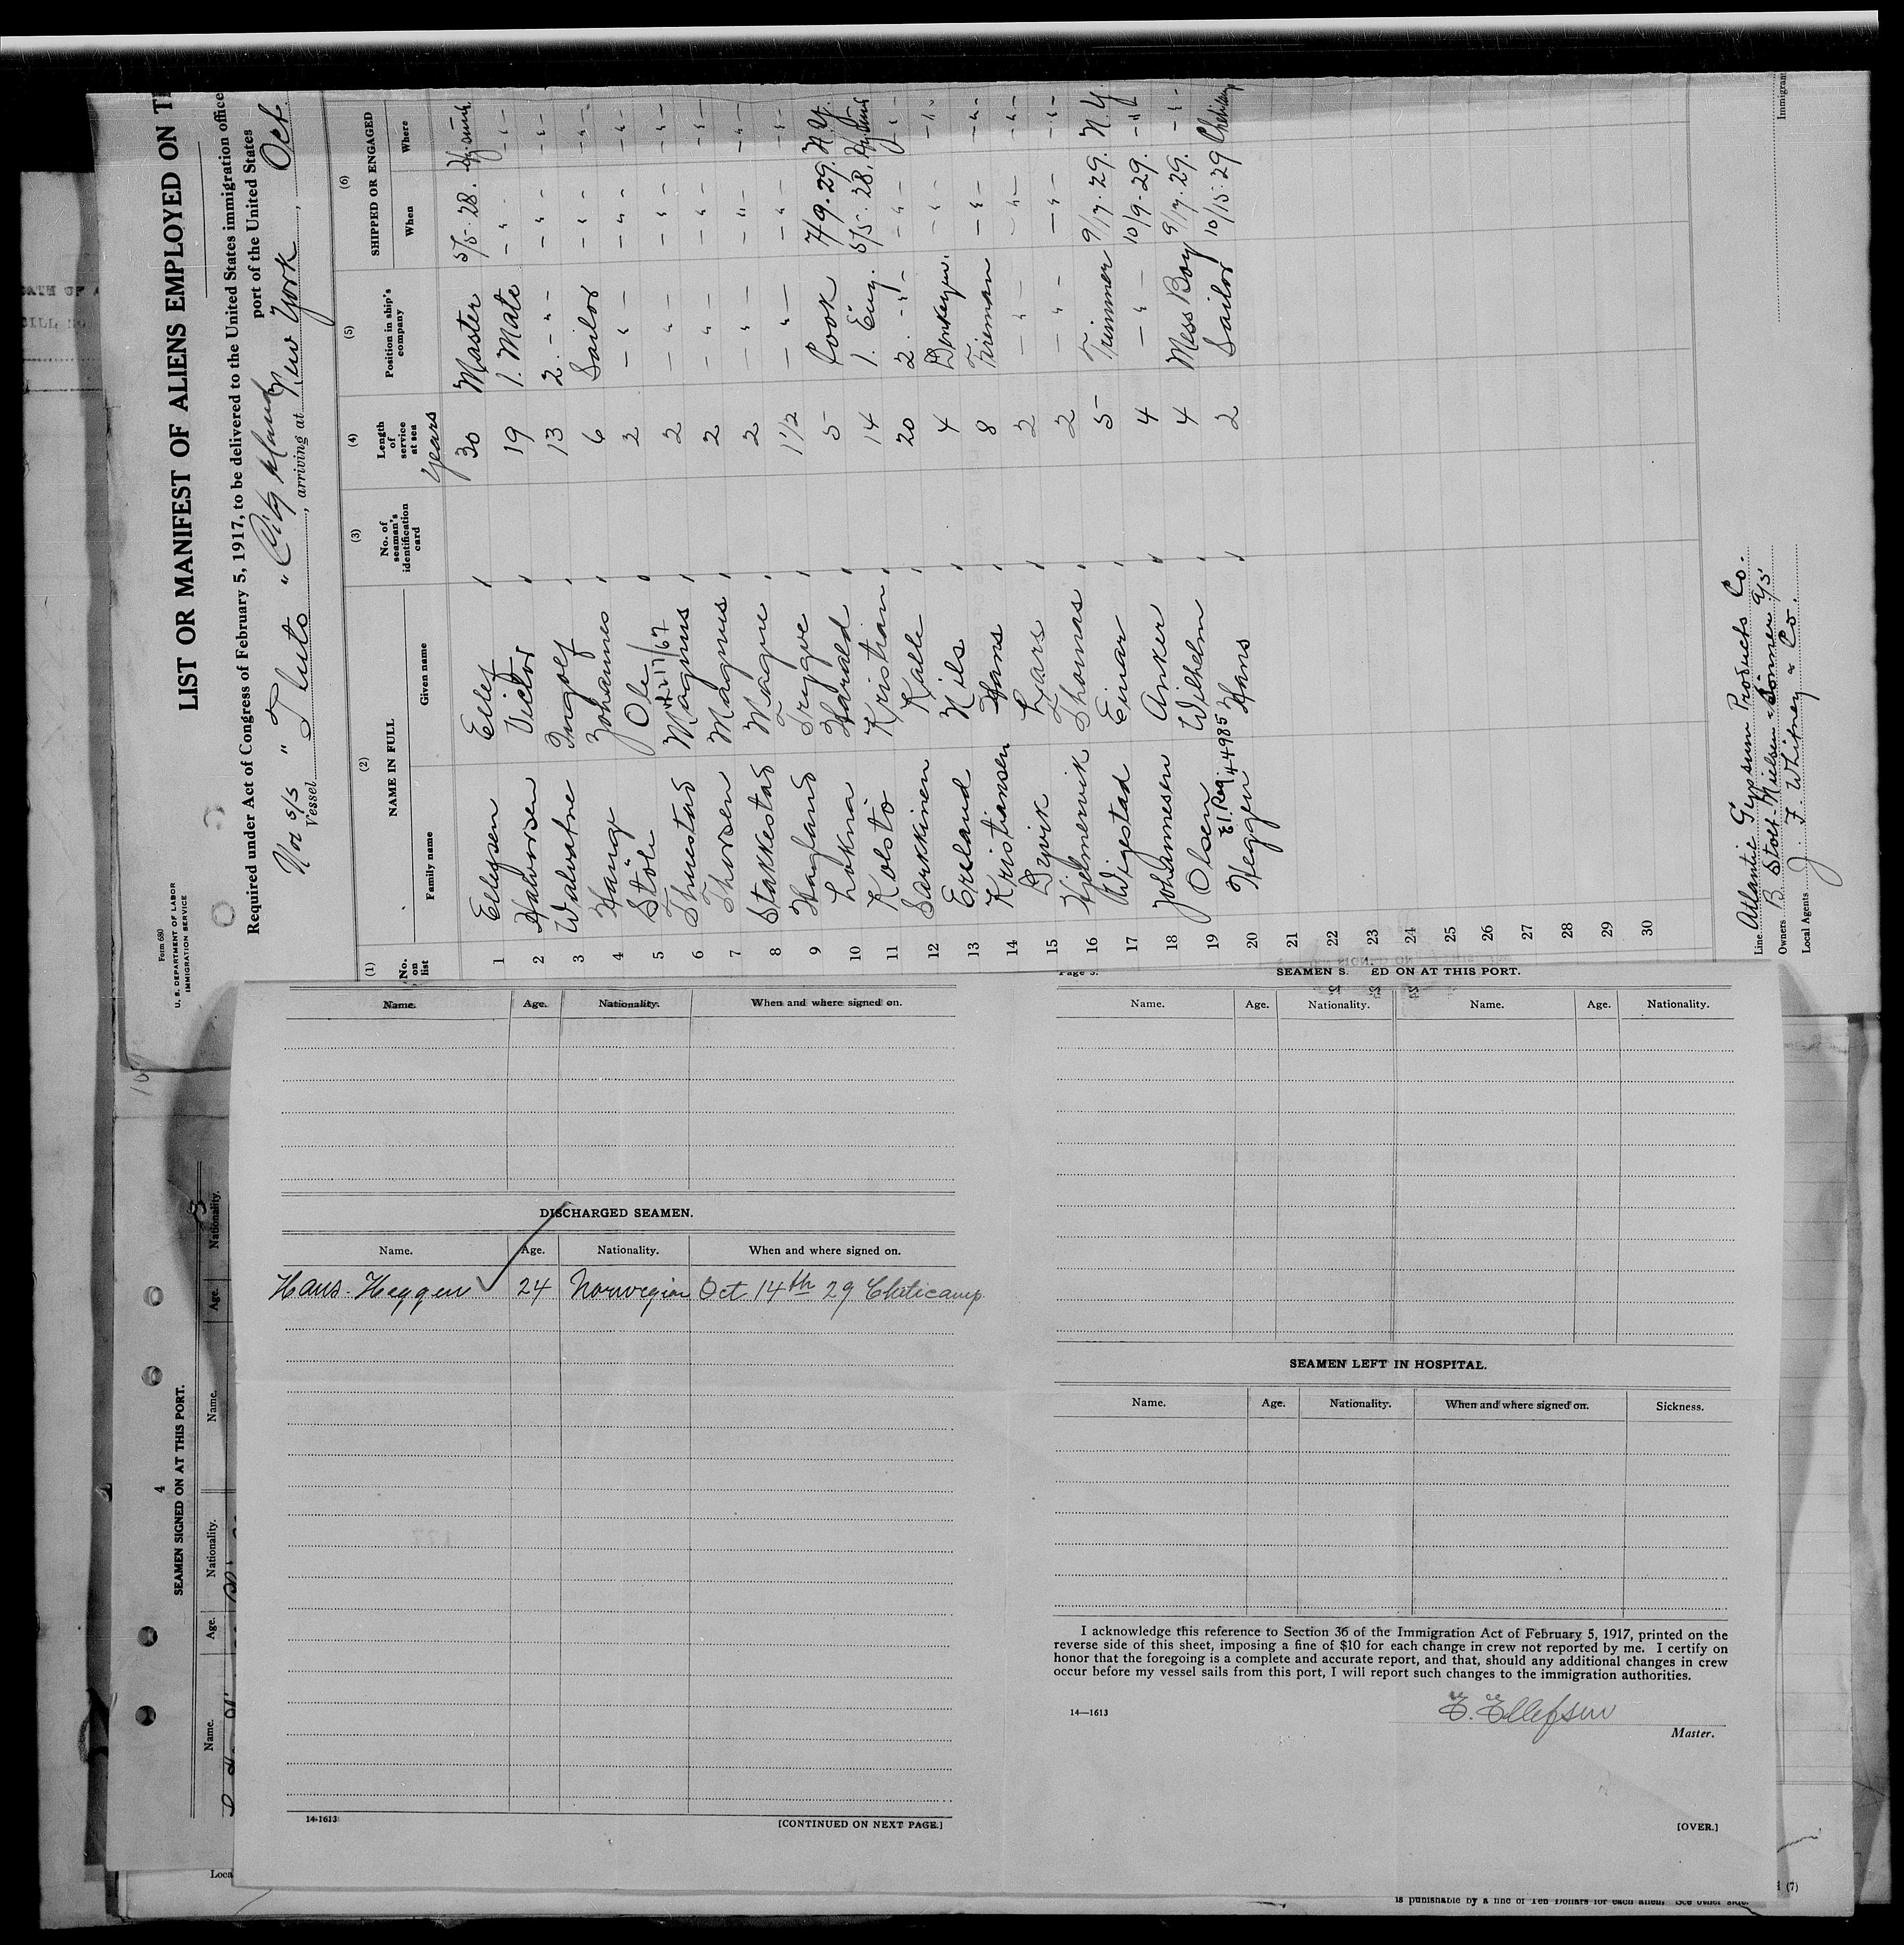 Form 680
U. S. DEPARTMENT OF LABOR
IMMIGRATION SERVICE
LIST OR MANIFEST OF ALIENS EMPLOYED ON
Required under Act of Congress of February 5, 1917, to be delivered to the United States immigration office
port of the United States
Nor s/s " Pluto " Vessel, arriving at New York, Oct.
(1) (2) (3) (4) (5) (6)
No. on list NAME IN FULL No. of seaman's identification card Length of service at sea Position in ship's company SHIPPED OR ENGAGED
Family name Given name When Where
Years
1 Ellefsen Ellef 30 Master 5/5-28.
2 Halvorsen Victor 19 1. Mate - " - - " -
3 Walvatne Ingolf 13 2. - " - - " - - " -
4 Hauge Johannes 6 Sailor - " - - " -
5 Stöle Ole 2 - " - - " - - " -
6 Thuestad Magnus 2 - " - - " - - " -
7 Thorsen Magnus 2 - " - - " - - " -
8 Stakkestad Magne 2 - " - - " - - " -
9 Hagland Trygve 1 1/2 - " - - " - - " -
10 Lokna Harald 5 Cook 7/9-29. N.Y.
11 Kolstö Kristian 14 1. Eng. 5/5-28.
12 Sarkkinen Kalle 20 2. - " - - " - - " -
13 Ereland Nils 4 Donkeym. - " - - " -
14 Kristiansen Hans 8 Fireman - " - - " -
15 Dyvik Lars 2 - " - - " - - " -
16 Hjelmervik Thomas 2 - " - - " - - " -
17 Wigestad Einar 5 Trimmer 9/17-29. N.Y
18 Johannesen Ansker 4 - " - 10/9-29. - " -
19 Olsen Wilhelm 4 Mess Boy 9/17-29. - " -
44985
20 Heggen Hans 2 Sailor 10/15-29
21
22
23
24
25
26
27
28
29
30
Line Atlantic Gypsum Products Co.
Owners B. Stolt-Nielsen
Local Agents J. F. Whitney & Co.
Immigrant
Name. Age. Nationality. When and where signed on.
DISCHARGED SEAMEN.
Name. Age. Nationality. When and where signed on.
Hans Heggen 24 Norwegian Oct 14th 29 Cheticamp
14-1613 [CONTINUED ON NEXT PAGE.]
SEAMEN S. ED ON AT THIS PORT.
Name. Age. Nationality. Name. Age. Nationality.
SEAMEN LEFT IN HOSPITAL.
Name. Age. Nationality. When and where signed on. Sickness.
I acknowledge this reference to Section 36 of the Immigration Act of February 5, 1917, printed on the
reverse side of this sheet, imposing a fine of $10 for each change in crew not reported by me. I certify on
honor that the foregoing is a complete and accurate report, and that, should any additional changes in crew
occur before my vessel sails from this port, I will report such changes to the immigration authorities.
14—1613
E. Ellefsen
Master.
[OVER.]
4
SEAMEN SIGNED ON AT THIS PORT.
Name. Age. Nationality. Name. Age. Nationality.
Loca
is punishable by a fine of Ten Dollars for each alien. See other side.
(7)